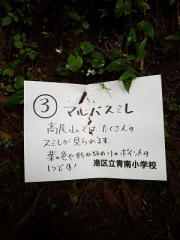 ③ マルバスミレ
高尾山ではたくさんの
スミレが見られます
葉の色や形が見分けのポイントの
1つです!
港区立青南小学校